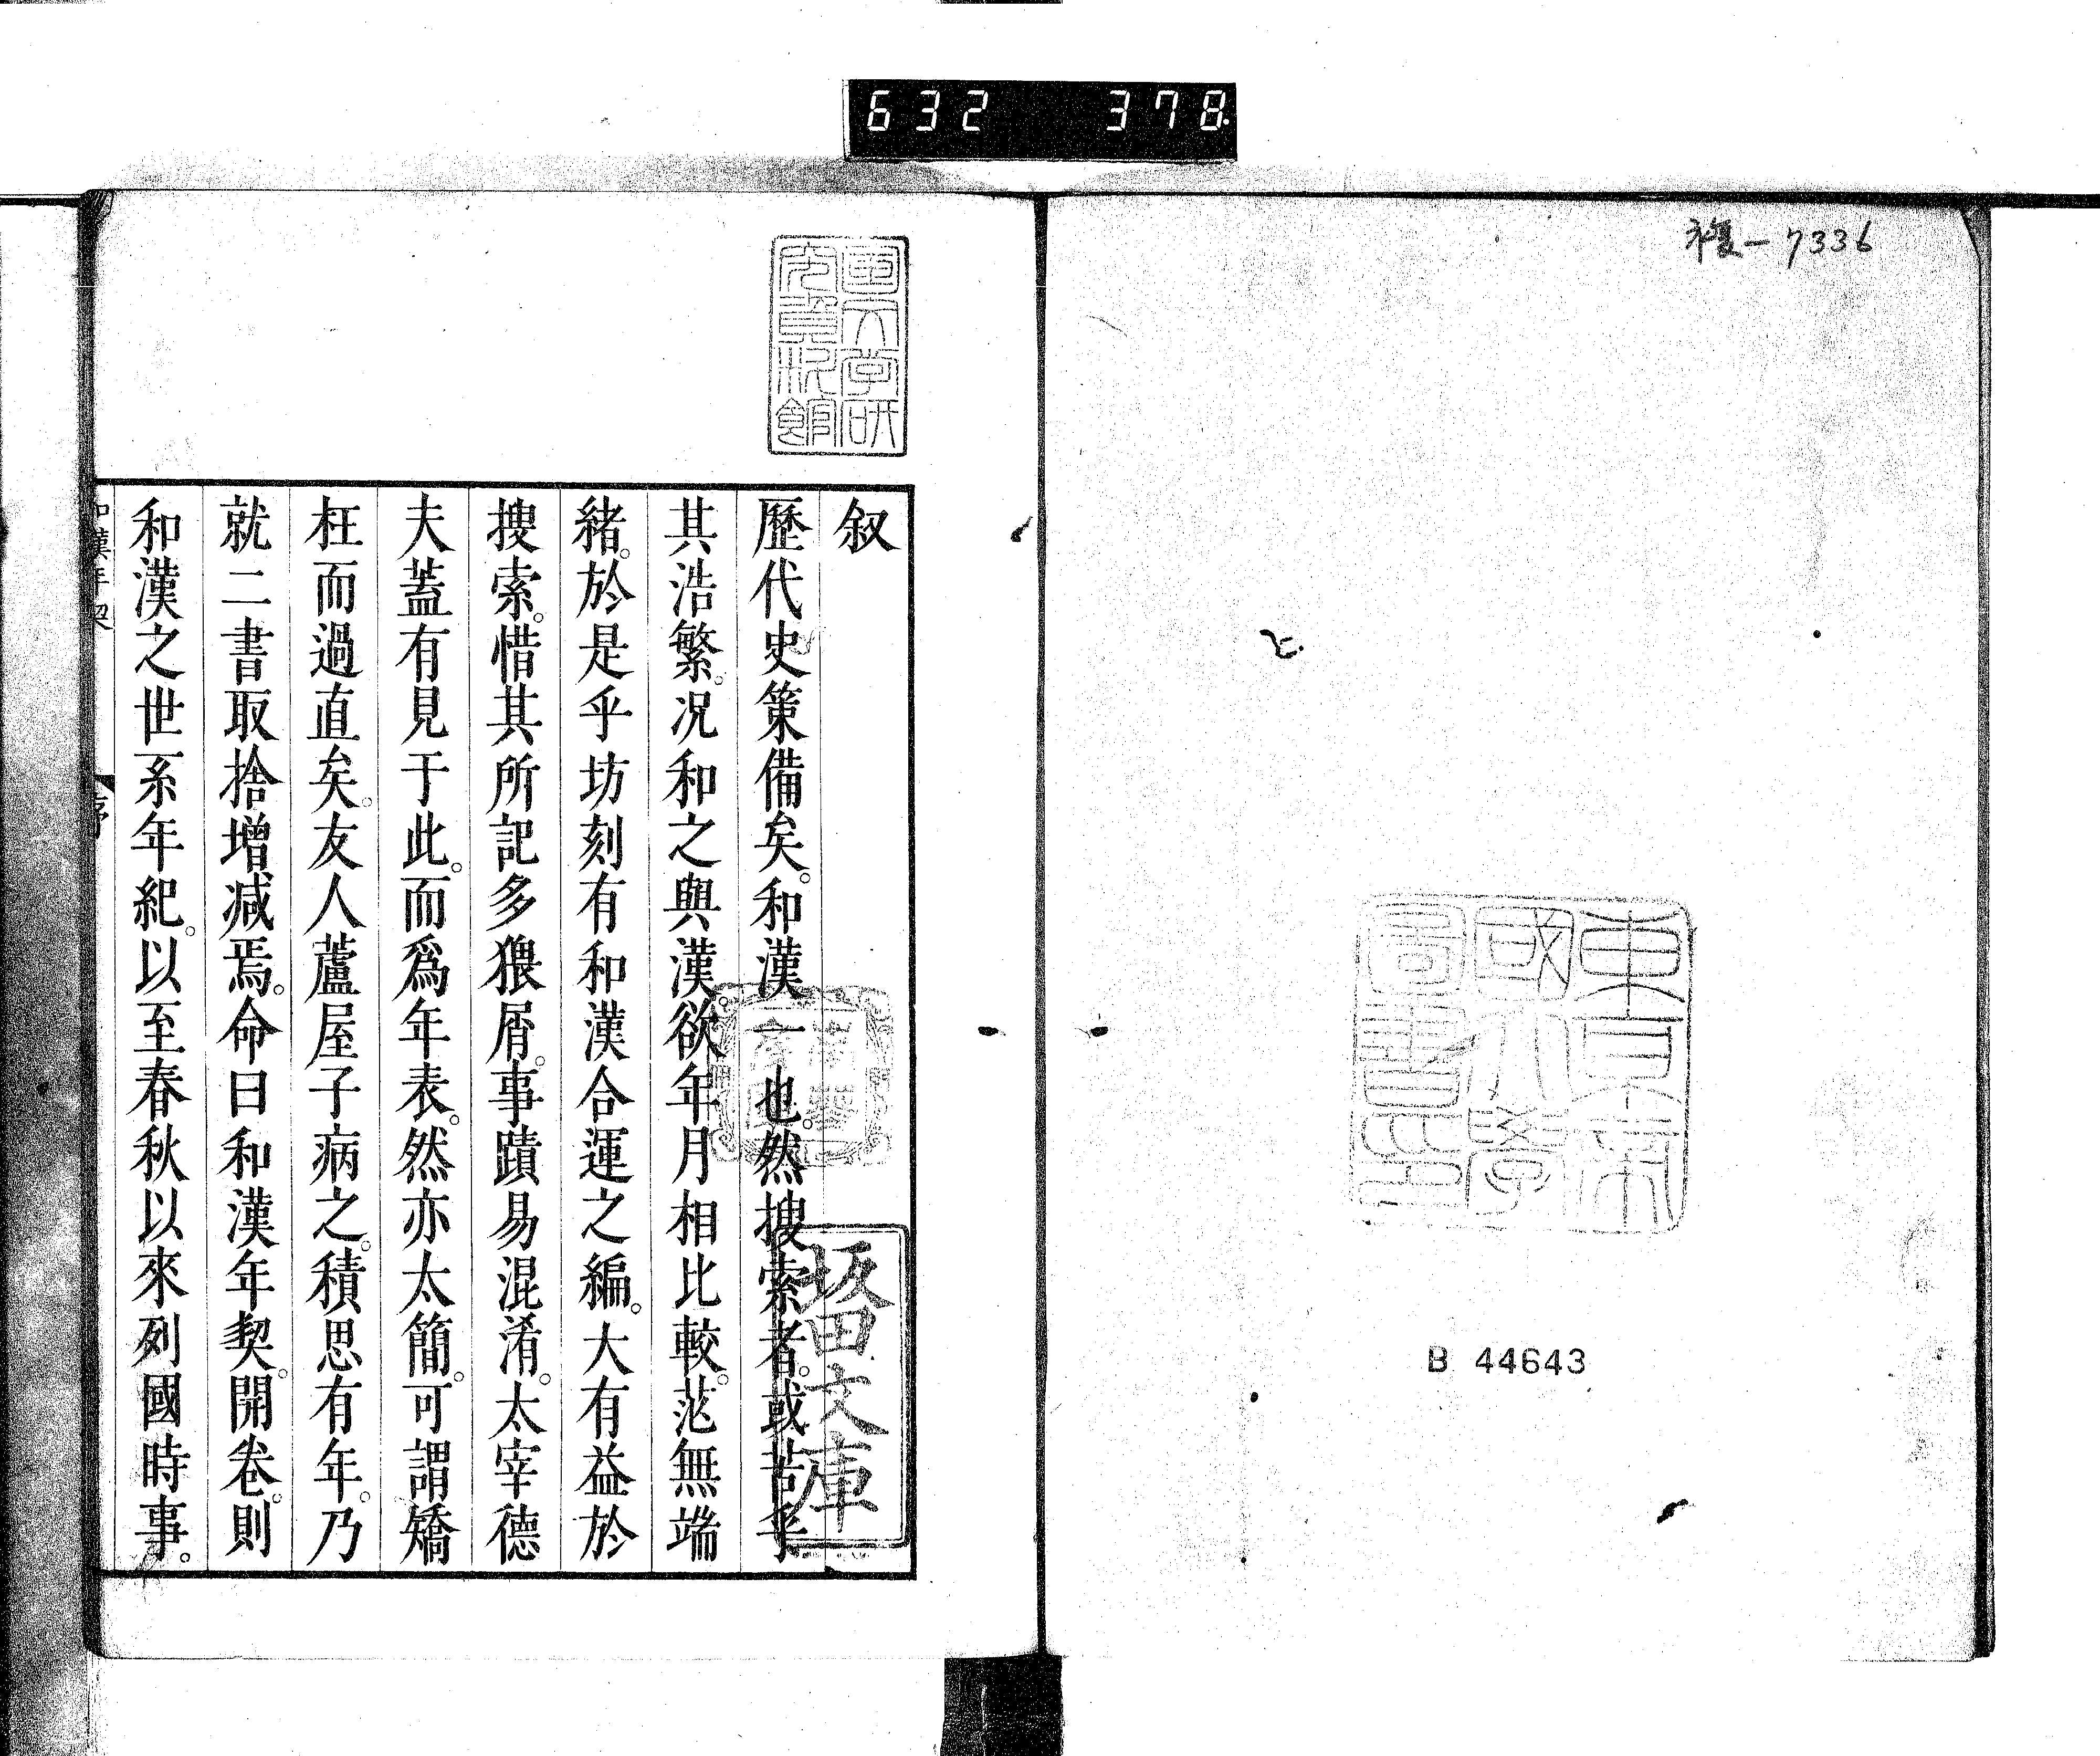 632 378.
複-7336
東京帝
國大學
圖書印
B 44643
国文学研
究資料館
叙
歷代史策備矣。和漢一也。然搜索者。或苦乎
其浩繁。况和之與漢。欲年月相比較。茫無端
緒。於是乎坊刻有和漢合運之編。大有益於
搜索。惜其所記多猥屑。事蹟易混淆。太宰德
夫蓋有見于此。而爲年表。然亦太簡。可謂矯
枉而過直矣。友人蘆屋子病之。積思有年。乃
就二書取捨增減焉。命曰和漢年契。開卷。則
和漢之世系年紀。以至春秋以來列國時事。
和漢年契
序
文庫